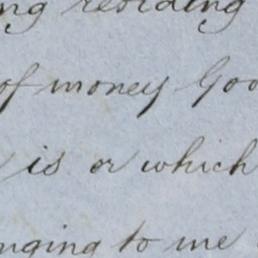 ng residing
of money Goo
is or which
nging to me